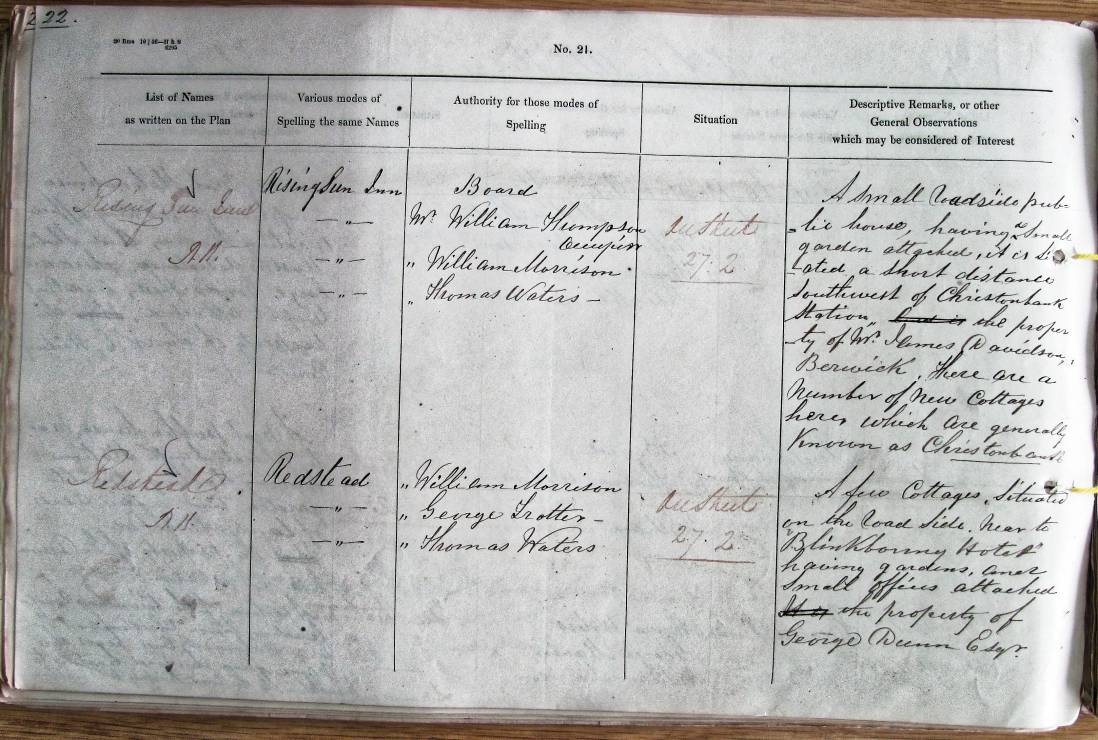 222.
No. 21.
List of Names
as written on the Plan
Various modes of
Spelling the same Names
Authority for those modes of
Spelling
Situation
Descriptive Remarks, or other
General Observations
which may be considered of Interest
Rising Sun Inn
R.H.
Rising Sun Inn
— „ —
— „ —
— „ —
Board
Mr. William Thompson
Occupier
„ William Morrison
„ Thomas Waters —
On Sheet
27. 2
A small Roadside pub-
-lic house, having a small
garden attached, it is si
-ated, a short distance
Southwest of Christonbank
Station, and is the proper
-ty of Mr. James Davidson,
Berwick. There are a
number of New Cottages
here, which are generally
Known as Christonbank
Redstead
R.H.
Redstead
— „ —
— „ —
„ William Morrison
„ George Trotter —
„ Thomas Waters
On Sheet
27. 2
A few Cottages, Situated
on the Road Side, Near to
"Blinkbonny Hotel"
having gardens, and
Small offices attached
It is the property of
George Dunn Esqr.